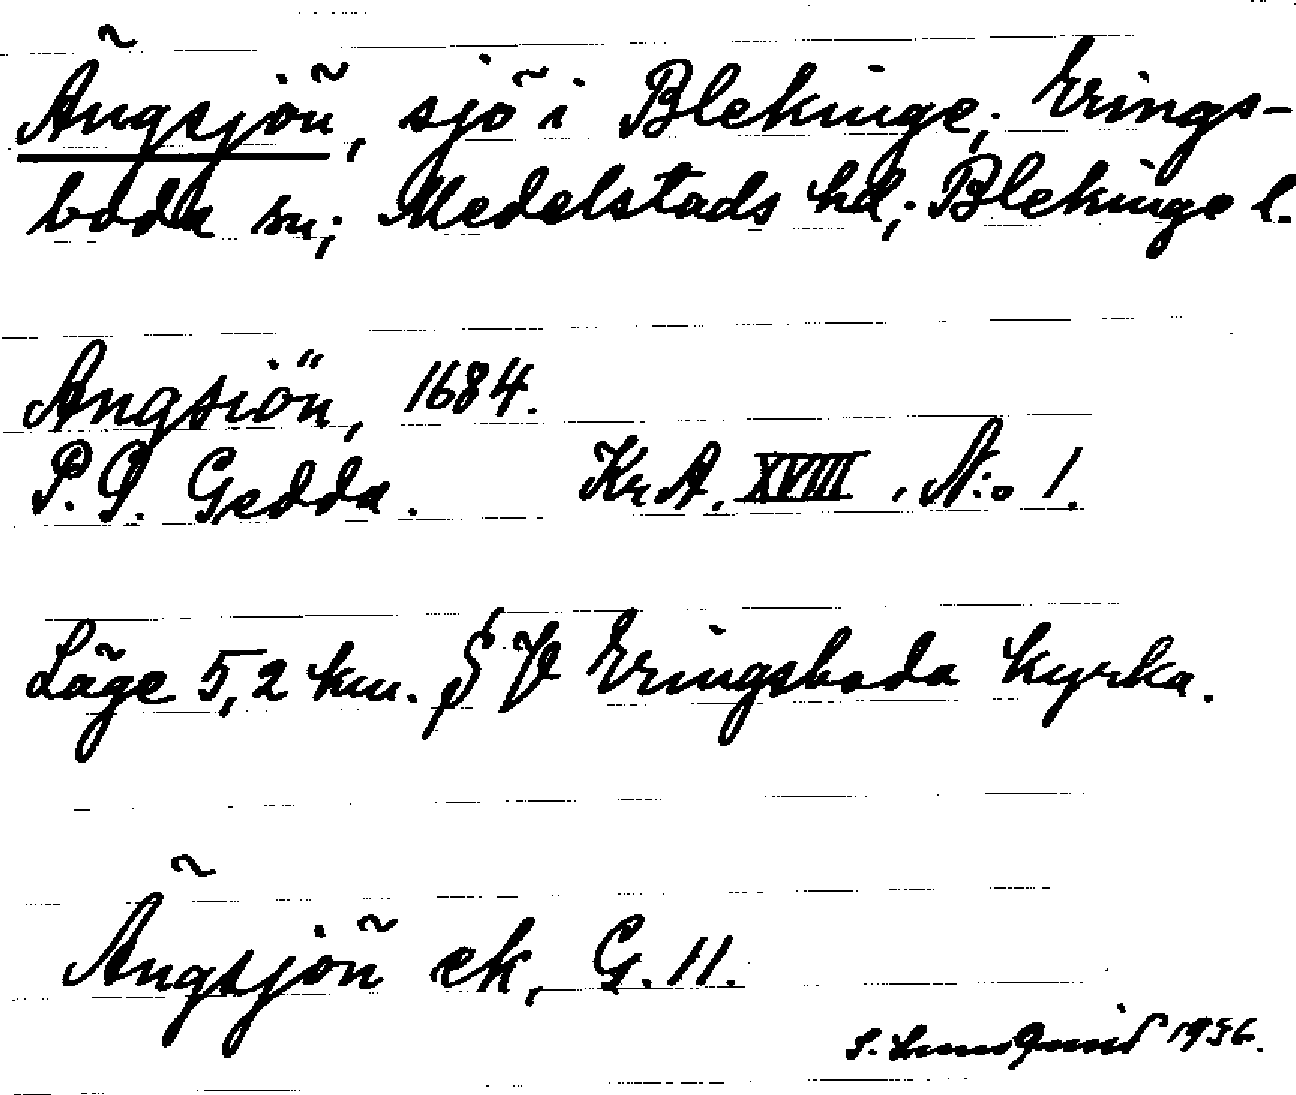 Ängsjön, sjö i Blekinge; Erings-
boda sn; Medelstads hd; Blekinge l.
Angsiön, 1684.
P. G. Gedda. Kr A, XVIII, N:o 1.
Läge 5,2 km. S V Eringsboda kyrka.
Ängsjön ek, G. 11.
S. Lundqvist 1936.